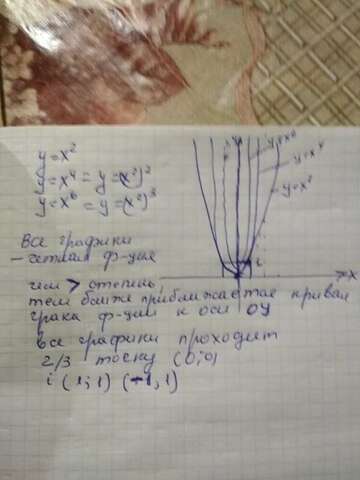 y=x²
y=x⁴ = y=(x²)²
y=x⁶ = y=(x²)³
y
y=x⁶
y=x⁴
y=x²
1
x
Все графики
– четная ф-ция
чем > степень,
тем ближе приближается кривая
графика ф-ции к оси ОУ
все графики проходит
2/3 точку (0;0)
i (1;1) (-1,1)